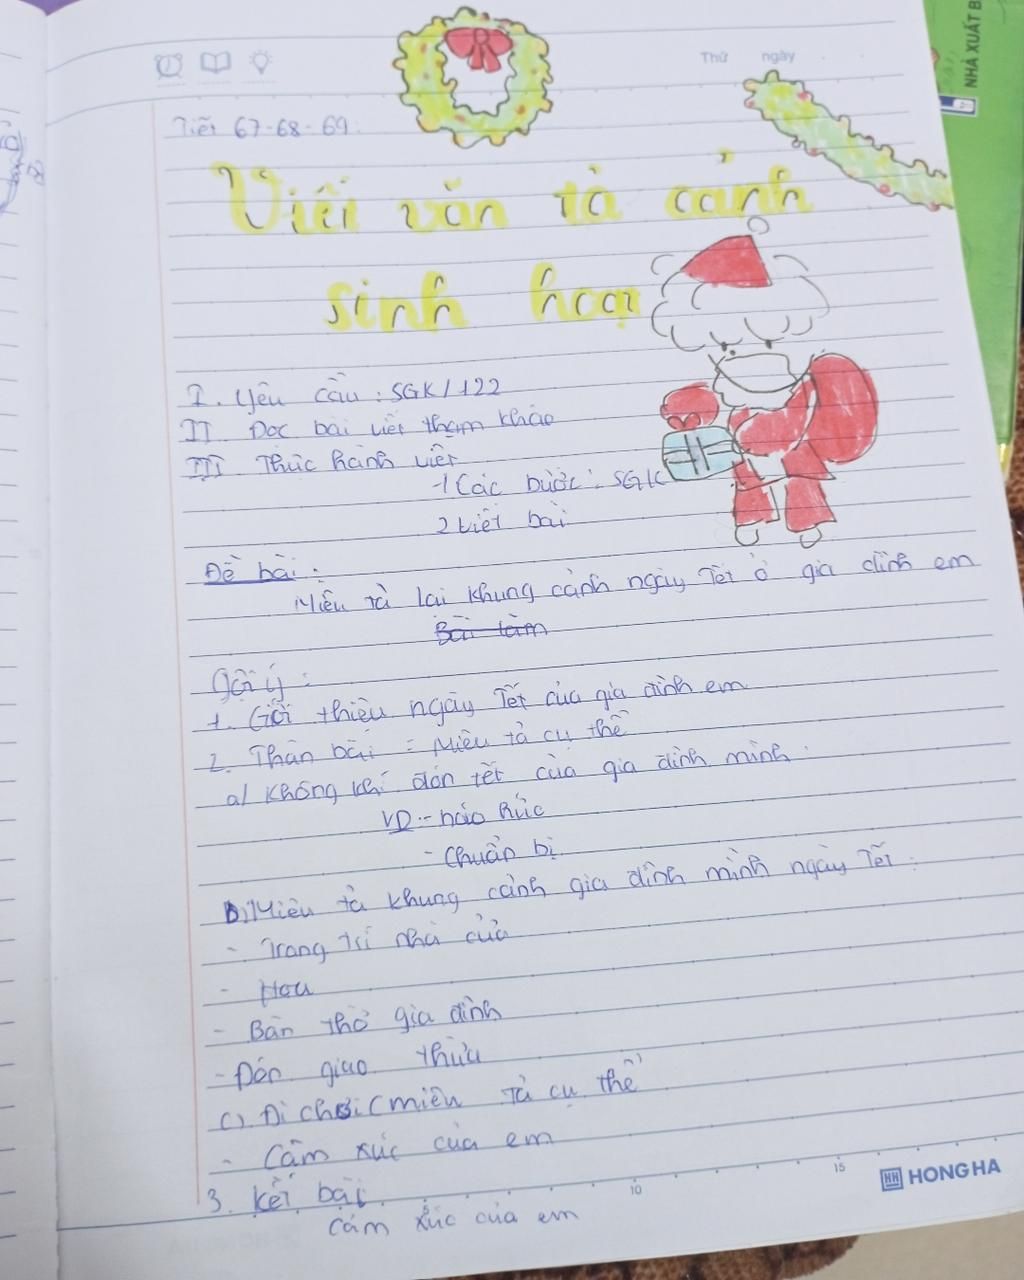 NHÀ XUẤT B
Thứ ngày
Tiết 67-68-69:
Viết văn tả cảnh
sinh hoạt
I. Yêu cầu : SGK/122
II Đọc bài viết tham khảo
III Thực hành viết
1 Các bước : SGK
2 Viết bài
Đề bài :
Miêu tả lại khung cảnh ngày Tết ở gia đình em
Bài làm
Gợi ý :
1. Giới thiệu ngày Tết của gia đình em
2. Thân bài : Miêu tả cụ thể
a/ Không khí đón tết của gia đình mình.
VD :- háo hức
- Chuẩn bị
b) Miêu tả khung cảnh gia đình mình ngày Tết :
- Trang trí nhà cửa
- Hoa
- Bàn thờ gia đình
- Đón giao thừa
c). Đi chơi (miêu tả cụ thể
- Cảm xúc của em
3. Kết bài
Cảm xúc của em
10 15 HONG HA